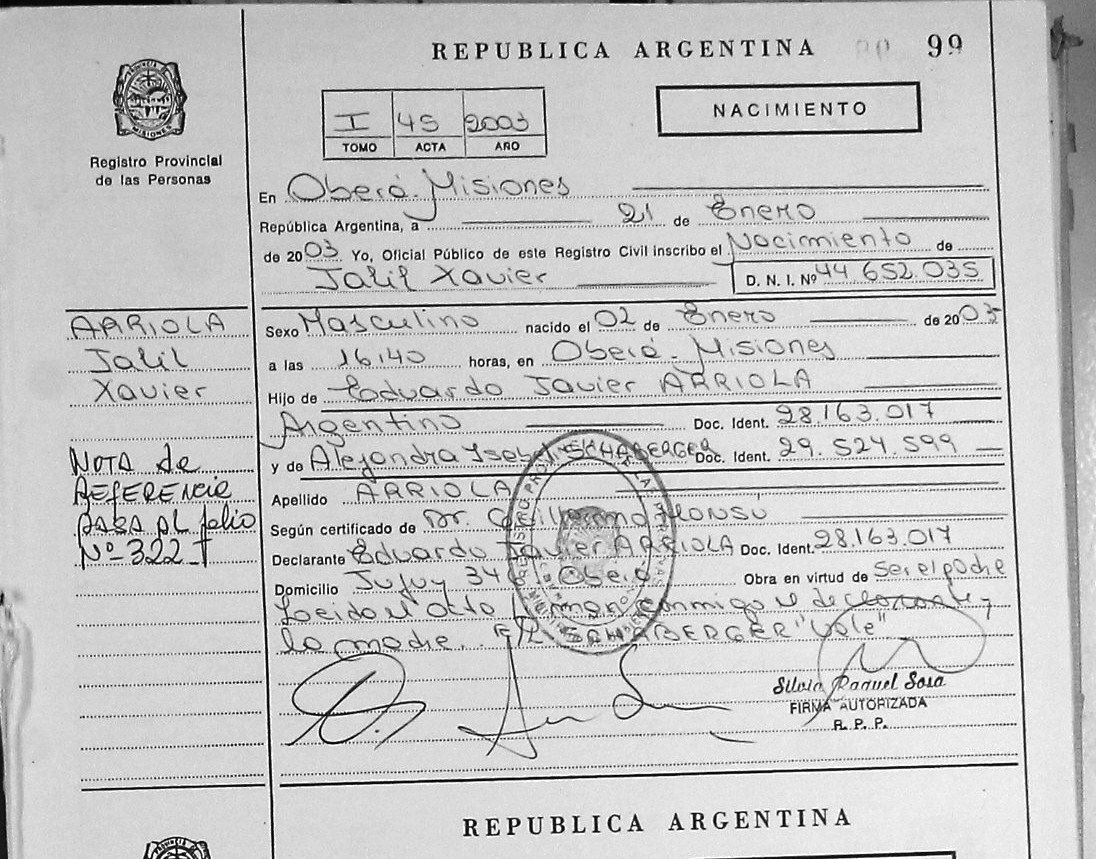 REPUBLICA ARGENTINA 99
NACIMIENTO
I 45 2003
TOMO ACTA AÑO
Registro Provincial
de las Personas
En Oberá. Misiones
República Argentina, a 21 de Enero
de 2003. Yo, Oficial Público de este Registro Civil inscribo el Nacimiento de
Jalil Xavier D. N. I. Nº 44.652.035
ARRIOLA
Jalil
Xavier
Sexo Masculino nacido el 02 de Enero de 2003
a las 16,40 horas, en Oberá. Misiones
Hijo de Eduardo Javier ARRIOLA
Argentino Doc. Ident. 28.163.017
y de Alejandra Isabel SCHABERGER Doc. Ident. 29.524.599
NOTA de
REFERENCIA
PASA AL folio
Nº 322 T
Apellido ARRIOLA
Según certificado de Dr. Guillermo Alonso
Declarante Eduardo Javier ARRIOLA Doc. Ident. 28.163.017
Domicilio Jujuy 346 Oberá Obra en virtud de Ser el padre
Leida el acta firman conmigo el declarante y
la madre. E/L SCHABERGER "Vale"
Silvia Raquel Sosa
FIRMA AUTORIZADA
R. P. P.
REPUBLICA ARGENTINA